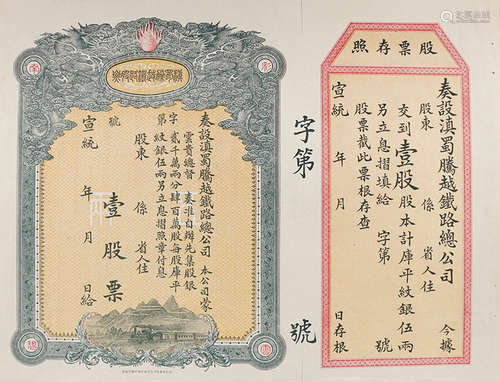 奏設滇蜀騰越鐵路總公司 本公司蒙
雲貴總督 奏准自辦先集股銀
貳千萬兩分肆百萬股每股庫平
紋銀伍兩另立息摺照章付息
字第
號
股東 係 省 人住
壹股票
宣統 年 月 日給
字第 號
股票存照
奏設滇蜀騰越鐵路總公司 今據
股東 係 省人住
交到壹股股本計庫平紋銀伍兩
另立息摺填給 字第 號
股票截此票根存查
宣統 年 月 日存根